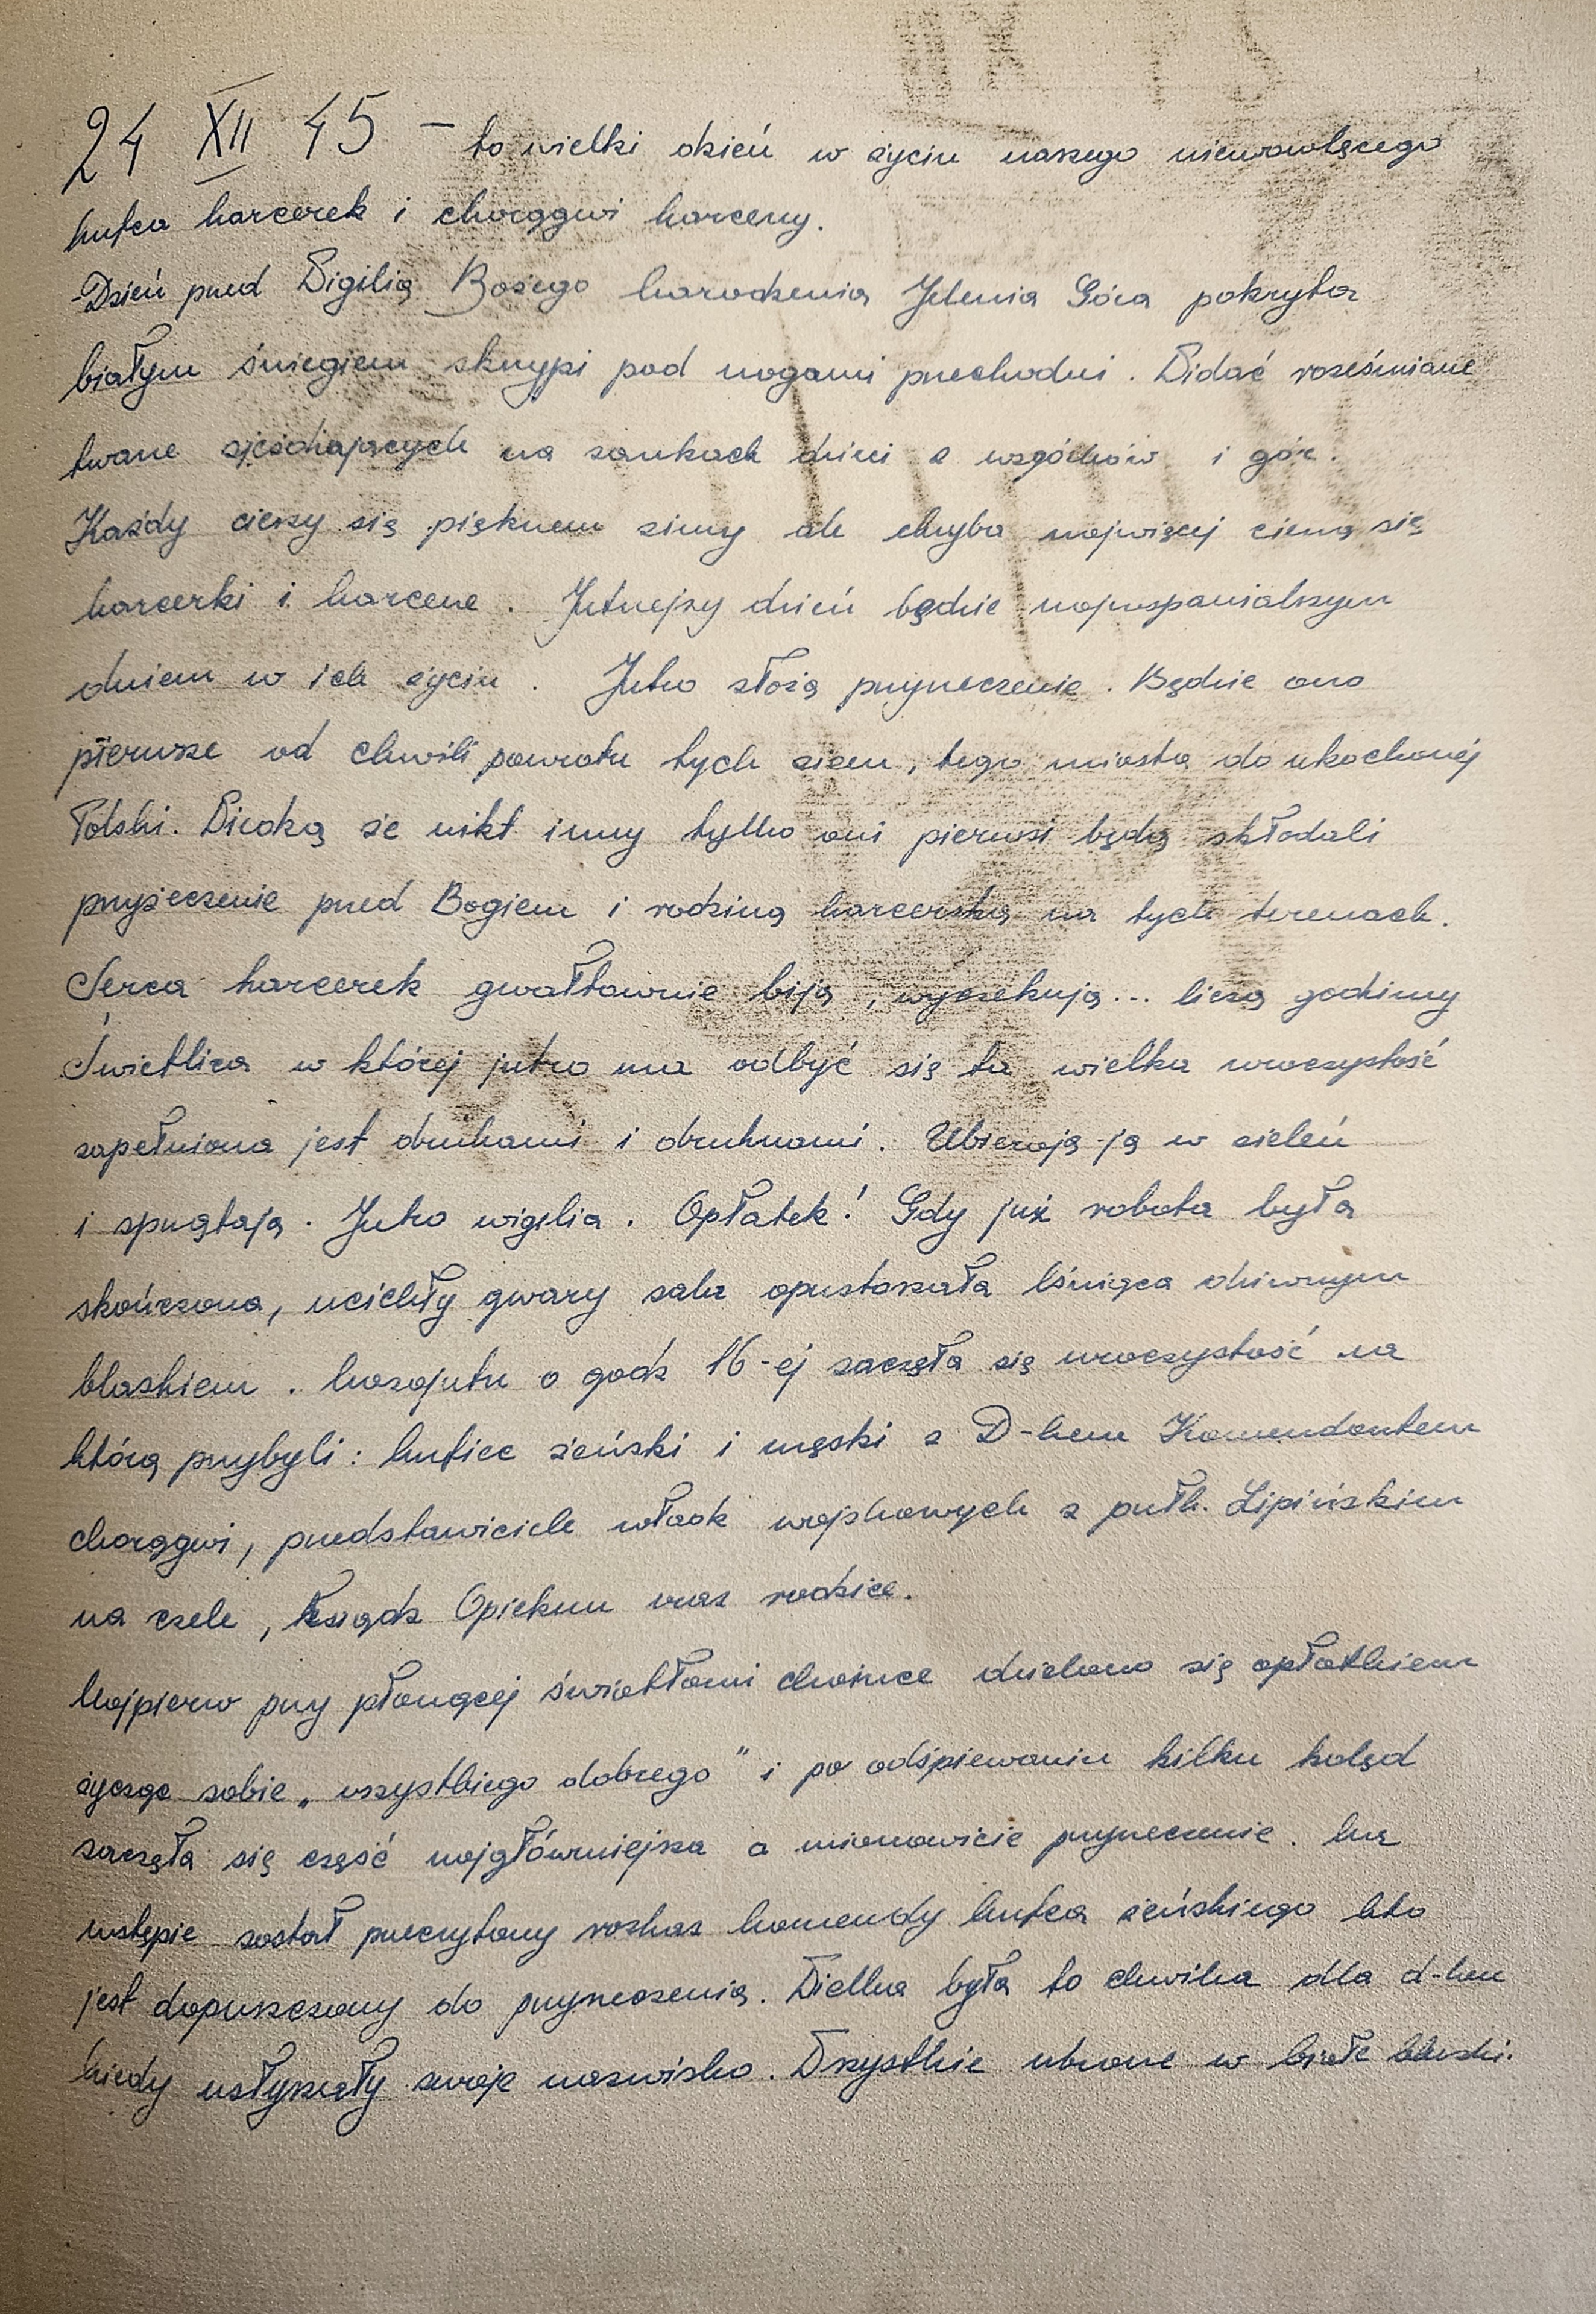 24 XII 45 – to wielki dzień w życiu naszego niemowlęcego
hufca harcerek i chorągwi harcerzy.
Dzień przed Wigilią Bożego Narodzenia Jelenia Góra pokryta
białym śniegiem skrzypi pod nogami przechodni. Widać roześmiane
twarze zjeżdżających na sankach dzieci z wzgórków i gór.
Każdy cieszy się pięknem zimy ale chyba najwięcej cieszą się
harcerki i harcerze. Jutrzejszy dzień będzie najwspanialszym
dniem w ich życiu. Jutro złożą przyrzeczenie. Będzie ono
pierwsze od chwili powrotu tych ziem, tego miasta do ukochanej
Polski. Wiedzą że nikt inny tylko oni pierwsi będą składali
przyżeczenie przed Bogiem i rodziną harcerską na tych terenach.
Serca harcerek gwałtownie biją, wyczekują... liczą godziny
Świetlica w której jutro ma odbyć się ta wielka uroczystość
zapełniona jest druhami i druhnami. Ubierają ją w zieleń
i sprzątają. Jutro wigilia. Opłatek! Gdy już robota była
skończona, ucichły gwary sala opustoszała lśniąca dziwnym
blaskiem. Nazajutrz o godz 16-ej zaczęła się uroczystość na
którą przybyli: hufiec żeński i męski z D-hem Komendantem
chorągwi, przedstawiciele władz wojskowych z pułk. Lipińskim
na czele, Ksiądz Opiekun oraz rodzice.
Najpierw przy płonącej światłami choince dzielono się opłatkiem
życząc sobie „wszystkiego dobrego" i po odśpiewaniu kilku kolęd
zaczęła się część najgłówniejsza a mianowicie przyrzeczenie. Na
wstępie został przeczytany rozkaz komendy hufca żeńskiego kto
jest dopuszczony do przyrzeczenia. Wielka była to chwila dla d-hen
kiedy usłyszały swoje nazwisko. Wszystkie ubrane w białe bluzki.